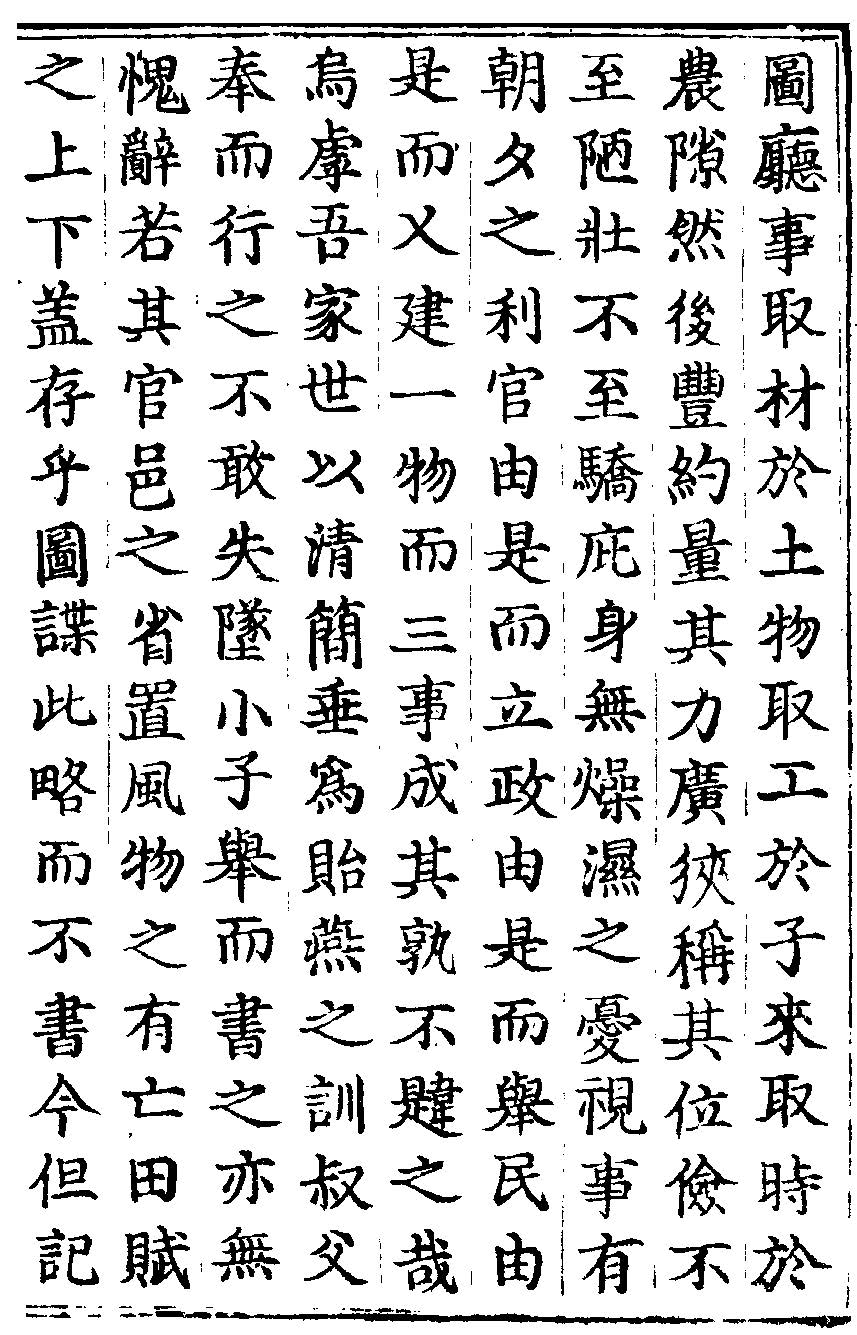 圖廳事取材於土物取工於子來取時於
農隙然後豐約量其力廣狹稱其位儉不
至陋壯不至驕庇身無燥濕之憂視事有
朝夕之利官由是而立政由是而舉民由
是而乂建一物而三事成其孰不韙之哉
烏虖吾家世以清簡垂爲貽燕之訓叔父
奉而行之不敢失墜小子舉而書之亦無
愧辭若其官邑之省置風物之有亡田賦
之上下盖存乎圖諜此略而不書今但記